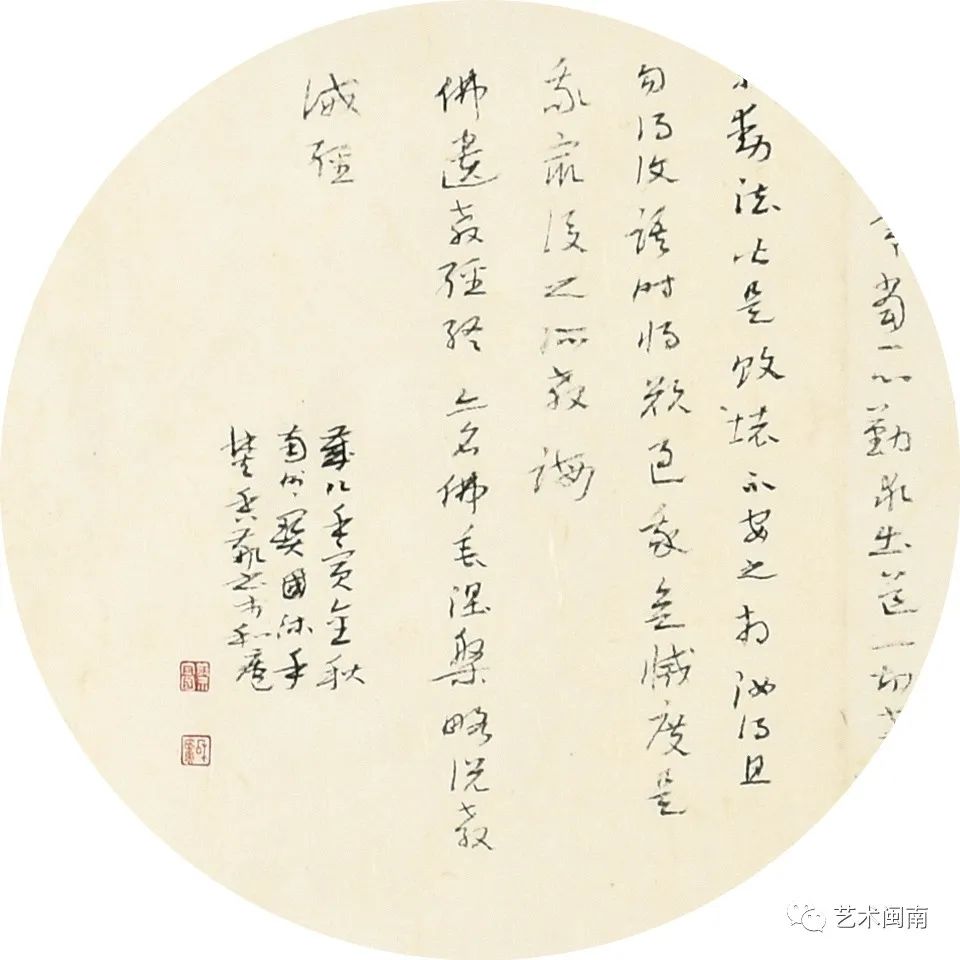 當一心勤求出道一切
動法皆是敗壞不安之相汝得且
勿得復語時將欲過我欲滅度是
我最後之所教誨
佛遺教經終 亦名佛垂涅槃略說教
誡經
歲次壬寅金秋
南州國沐手
焚香敬書於和庵
艺术闽南